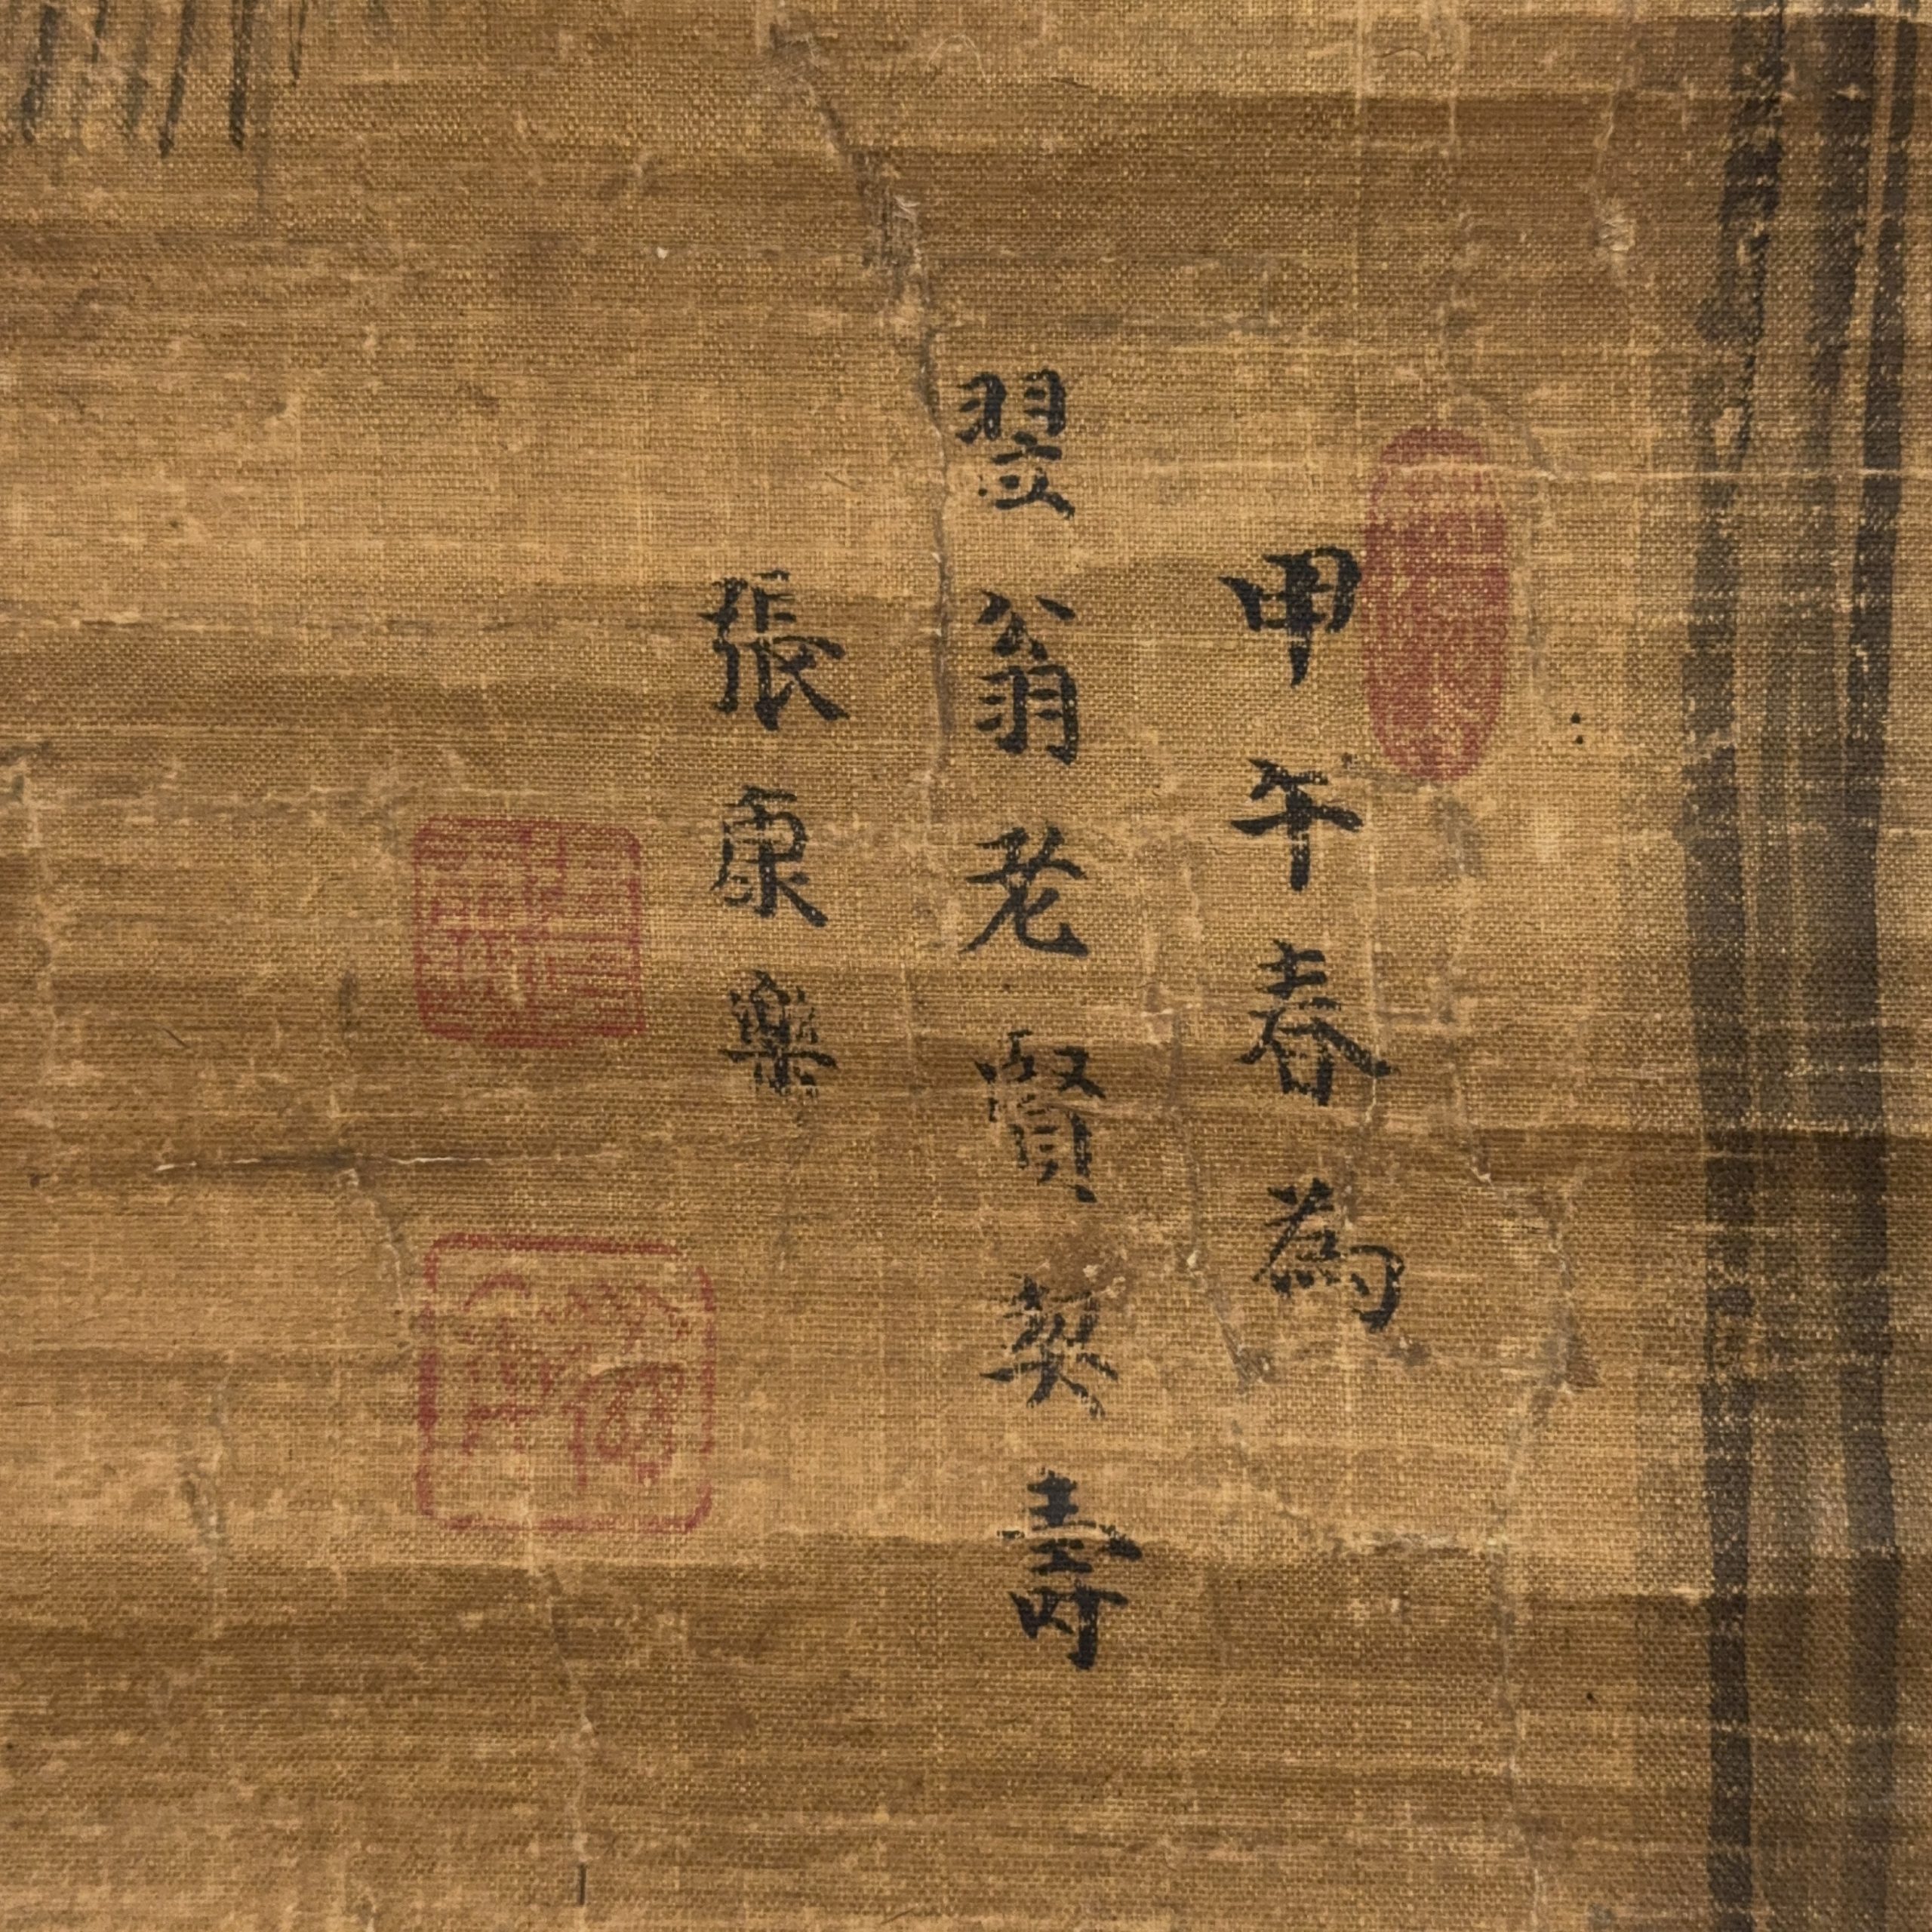 甲午春為
翌翁老賢契壽
張康樂